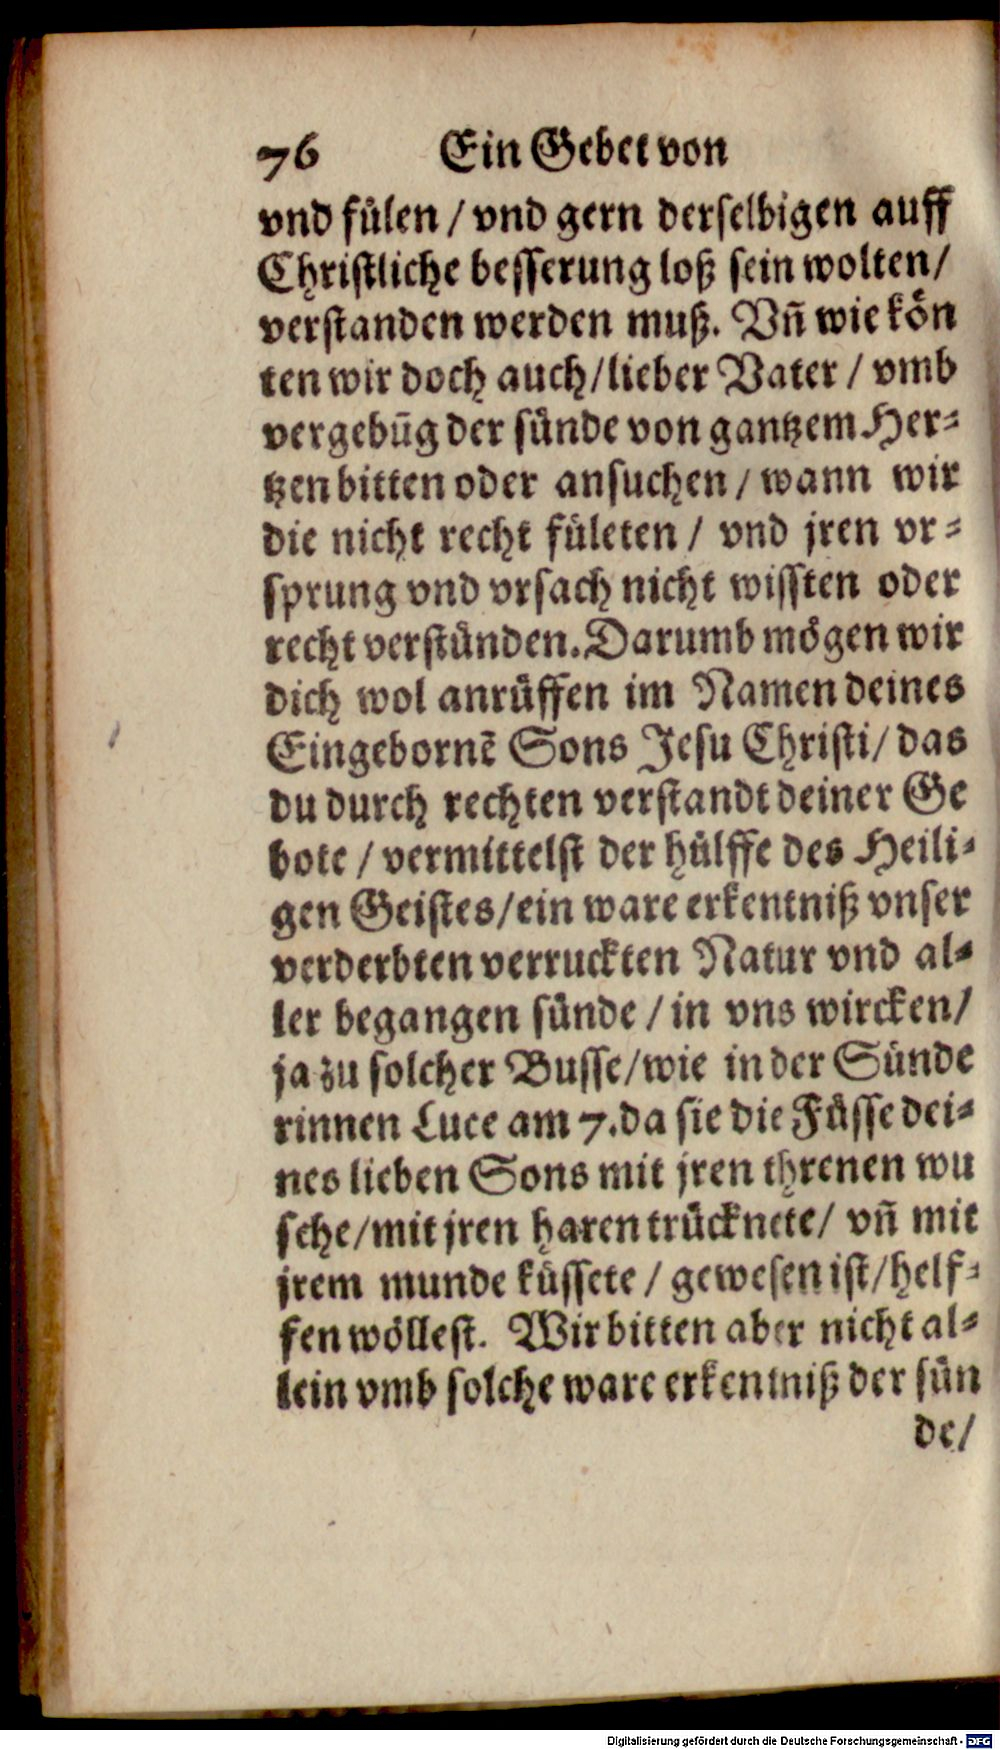 76 Ein Gebet von
vnd fülen / vnd gern derselbigen auff
Christliche besserung loß sein wolten/
verstanden werden muß. Vñ wie kön
ten wir doch auch/lieber Vater / vmb
vergebūg der sünde von gantzem Her-
tzen bitten oder ansuchen / wann wir
die nicht recht fületen / vnd jren vr-
sprung vnd vrsach nicht wissten oder
recht verstünden. Darumb mögen wir
dich wol anrüffen im Namen deines
Eingebornē Sons Jesu Christi/ das
du durch rechten verstandt deiner Ge
bote / vermittelst der hülffe des Heili-
gen Geistes/ein ware erkentniß vnser
verderbten verruckten Natur vnd al-
ler begangen sünde / in vns wircken/
ja zu solcher Busse/wie in der Sünde
rinnen Luce am 7. da sie die Füsse dei-
nes lieben Sons mit jren threnen wu
sche/mit jren haren trücknete/ vñ mit
jrem munde küssete / gewesen ist/helf-
fen wöllest. Wir bitten aber nicht al-
lein vmb solche ware erkentniß der sün
de/
Digitalisierung gefördert durch die Deutsche Forschungsgemeinschaft - DFG